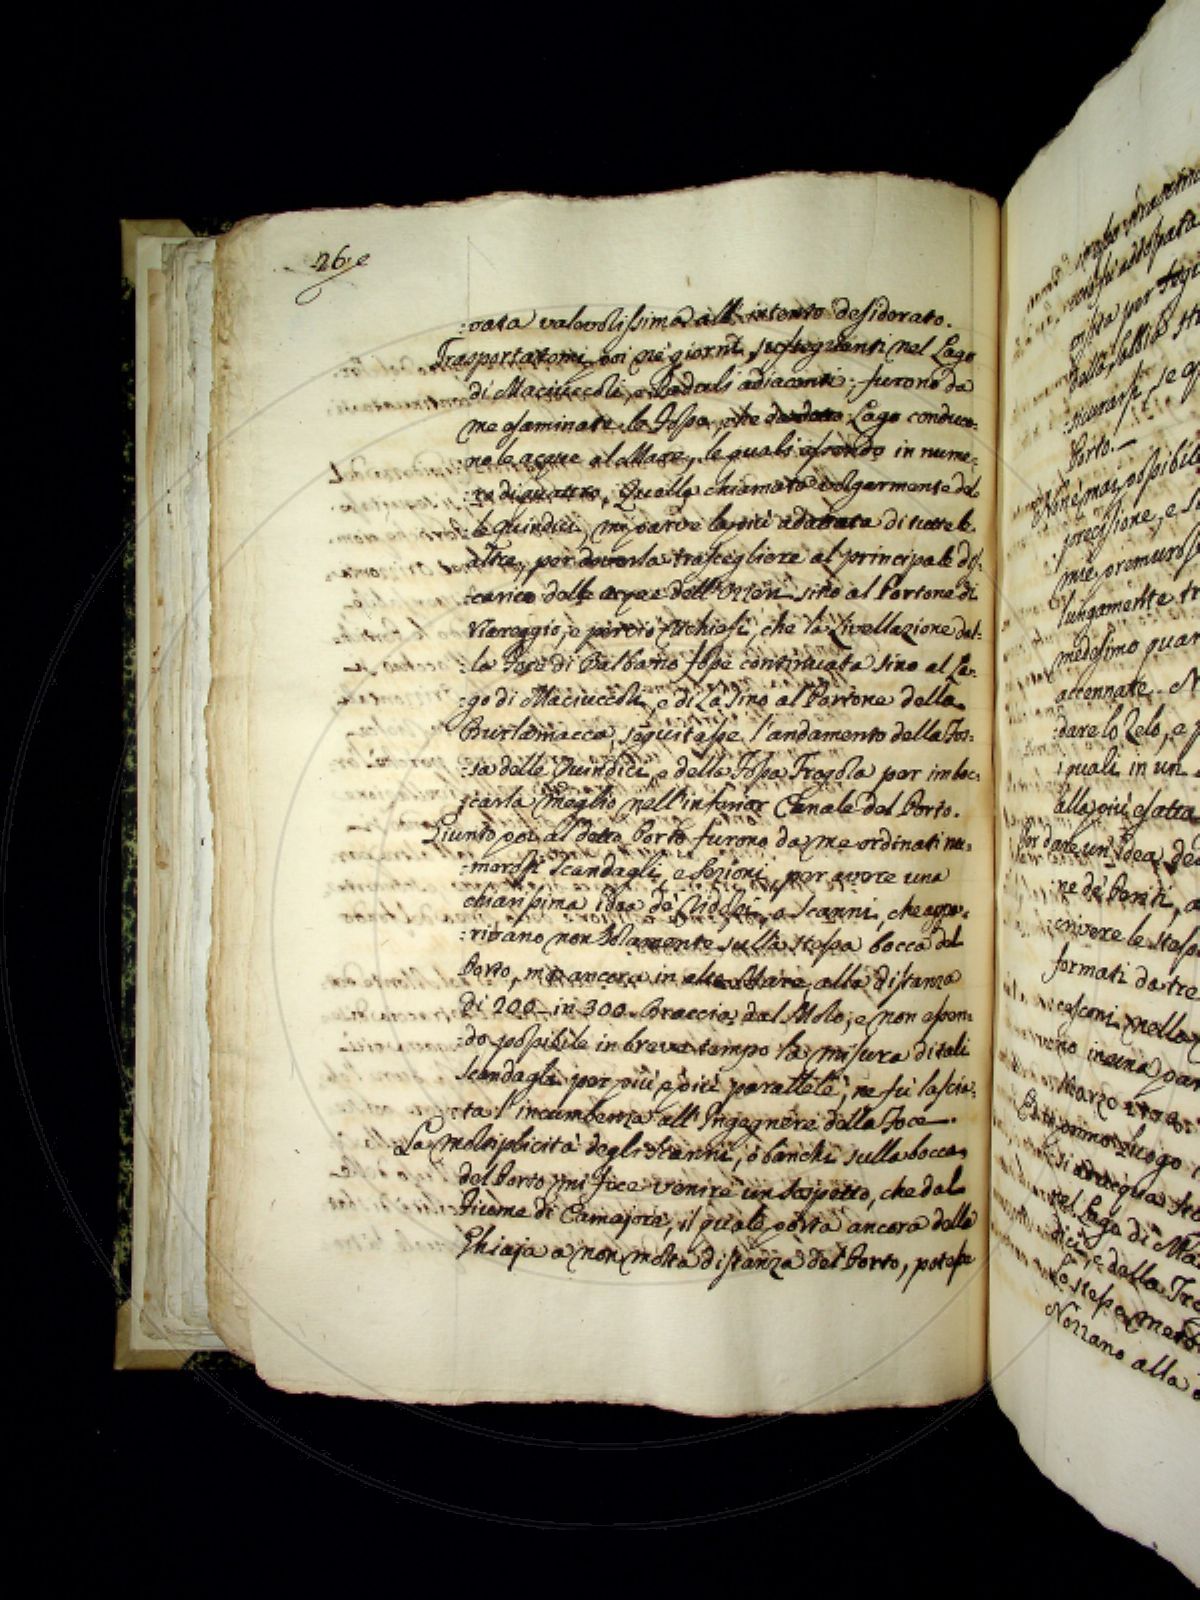 26.e
:vata valevolissima all'intento desiderato.
Trasportatomi poi nè giorni susseguenti nel Lago
di Maciuccoli, e Paduli adiacenti; furono da
me esaminate le Fosse, che da detto Lago conduco-
:no le acque al Mare, le quali essendo in nume-
:ro di quattro, Quella chiamata volgarmente del-
:le quindici, mi parve la più adattata di tutte le
altre, per doverla trascegliere al principale dis-
:carico delle acque dell'Ozzeri sino al Portone di
Viareggio, e perciò richiesi, che la Livellazione dal-
:la Foce di Balbano fosse continuata sino al La-
:go di Maciuccoli, e di La sino al Portone della
Burlamacca, seguitasse l'andamento della Fos-
:sa delle Quindici, e della Fossa Fragola per imboc-
:carla meglio nell'inferior Canale del Porto.
Giunto poi al detto Porto furono da me ordinati nu-
:merosi scandagli, e sezioni, per avere una
chiarissima idea de' Ridossi, o Scanni, che appa-
:rivano non solamente sulla stessa bocca del
Porto, ma ancora in alto Mare, alla distanza
di 200. in 300. Braccia dal Molo; e non essen-
:do possibile in breve tempo la misura di tali
scandagli per più e più parallele, ne fù lascia-
:ta l'incumbenza all'Ingegnere della Foce.
La moltiplicità degli Scanni, o banchi sulla bocca
del Porto mi fece venire un sospetto, che dal
Fiume di Camajora, il quale porta ancora della
Ghiaja a non molta distanza del Porto, potesse
della
Porto.
Non è mai possibile
precisione, e
mie premuros
lungamente tr
medesimo quan
accennate. N
dare lo Zelo, e p
i quali in un
alla più esatta
Per dare un'idea de
:ne de' Ponti, a
:crivere le stess
formati da tre
nella
in una par
Marzo
luogo
si
nel Lago di Ma
:dici, e della Fra
Lo stesso meto
Nozzano alla